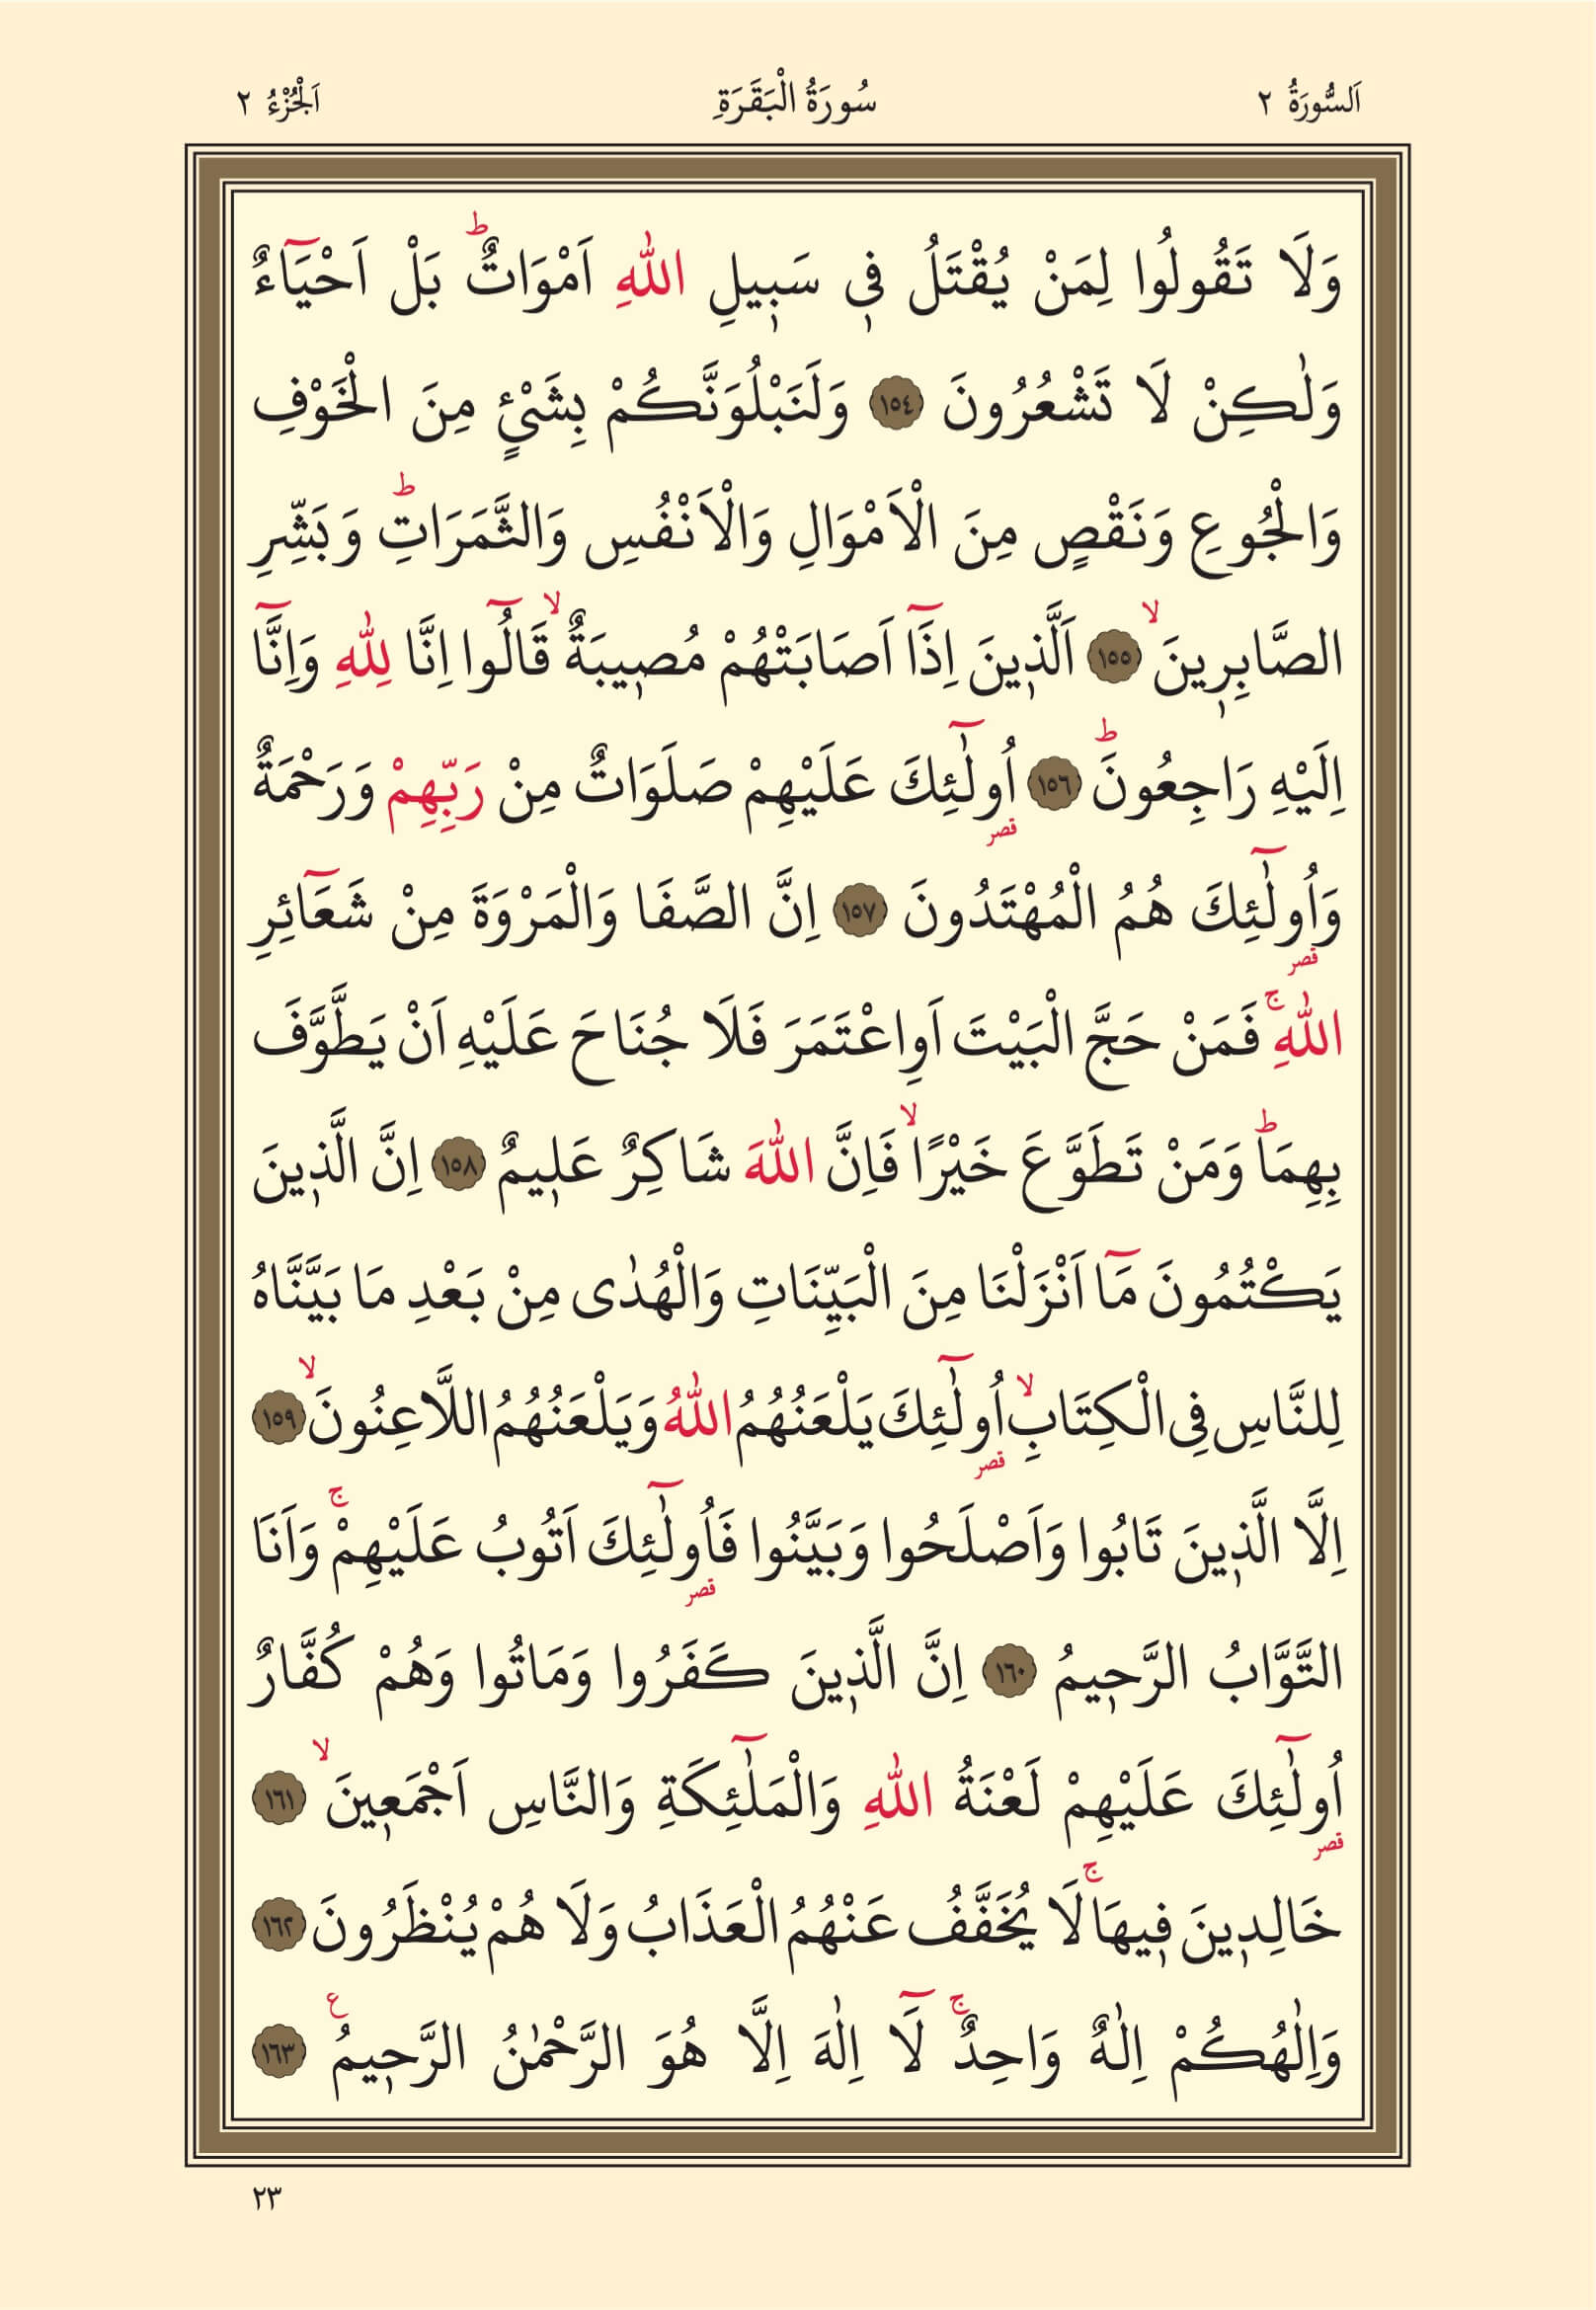 اَلسُّورَةُ ٢ سُورَةُ الْبَقَرَةِ اَلْجُزْءُ ٢
وَلَا تَقُولُوا لِمَنْ يُقْتَلُ فٖي سَبٖيلِ اللّٰهِ اَمْوَاتٌؕ بَلْ اَحْيَٓاءٌ
وَلٰكِنْ لَا تَشْعُرُونَ ﴿١٥٤﴾ وَلَنَبْلُوَنَّكُمْ بِشَيْئٍ مِنَ الْخَوْفِ
وَالْجُوعِ وَنَقْصٍ مِنَ الْاَمْوَالِ وَالْاَنْفُسِ وَالثَّمَرَاتِؕ وَبَشِّرِ
الصَّابِرٖينَۙ ﴿١٥٥﴾ اَلَّذٖينَ اِذَٓا اَصَابَتْهُمْ مُصٖيبَةٌۙ قَالُٓوا اِنَّا لِلّٰهِ وَاِنَّٓا
اِلَيْهِ رَاجِعُونَؕ ﴿١٥٦﴾ اُولٰٓئِكَ عَلَيْهِمْ صَلَوَاتٌ مِنْ رَبِّهِمْ وَرَحْمَةٌ
قصر
وَاُولٰٓئِكَ هُمُ الْمُهْتَدُونَ ﴿١٥٧﴾ اِنَّ الصَّفَا وَالْمَرْوَةَ مِنْ شَعَٓائِرِ
قصر
اللّٰهِۚ فَمَنْ حَجَّ الْبَيْتَ اَوِاعْتَمَرَ فَلَا جُنَاحَ عَلَيْهِ اَنْ يَطَّوَّفَ
بِهِمَاؕ وَمَنْ تَطَوَّعَ خَيْرًاۙ فَاِنَّ اللّٰهَ شَاكِرٌ عَلٖيمٌ ﴿١٥٨﴾ اِنَّ الَّذٖينَ
يَكْتُمُونَ مَٓا اَنْزَلْنَا مِنَ الْبَيِّنَاتِ وَالْهُدٰى مِنْ بَعْدِ مَا بَيَّنَّاهُ
لِلنَّاسِ فِى الْكِتَابِۙ اُولٰٓئِكَ يَلْعَنُهُمُ اللّٰهُ وَيَلْعَنُهُمُ اللَّاعِنُونَۙ ﴿١٥٩﴾
قصر
اِلَّا الَّذٖينَ تَابُوا وَاَصْلَحُوا وَبَيَّنُوا فَاُولٰٓئِكَ اَتُوبُ عَلَيْهِمْۚ وَاَنَا
قصر
التَّوَّابُ الرَّحٖيمُ ﴿١٦٠﴾ اِنَّ الَّذٖينَ كَفَرُوا وَمَاتُوا وَهُمْ كُفَّارٌ
اُولٰٓئِكَ عَلَيْهِمْ لَعْنَةُ اللّٰهِ وَالْمَلٰٓئِكَةِ وَالنَّاسِ اَجْمَعٖينَۙ ﴿١٦١﴾
قصر
خَالِدٖينَ فٖيهَاۚ لَا يُخَفَّفُ عَنْهُمُ الْعَذَابُ وَلَا هُمْ يُنْظَرُونَ ﴿١٦٢﴾
وَاِلٰهُكُمْ اِلٰهٌ وَاحِدٌۚ لَٓا اِلٰهَ اِلَّا هُوَ الرَّحْمٰنُ الرَّحٖيمُ ع ﴿١٦٣﴾
٢٣